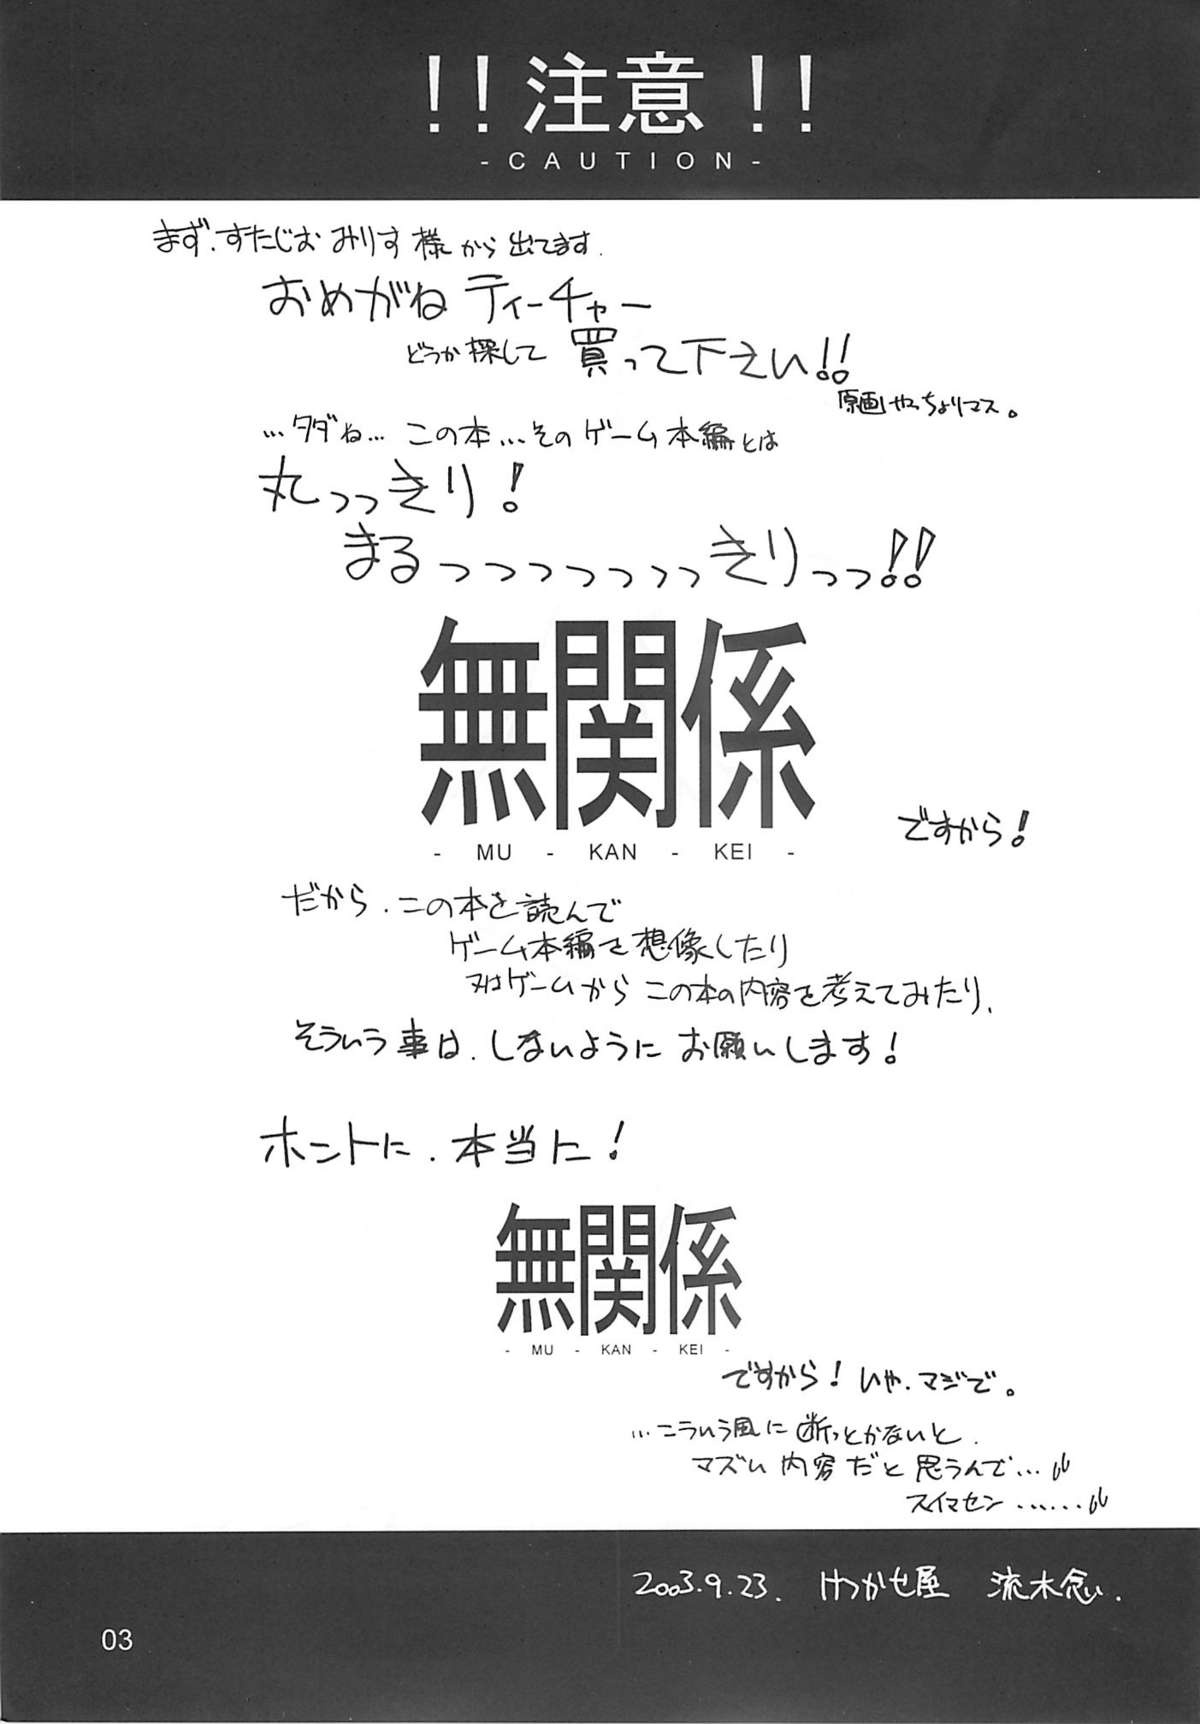 !!注意!!
- CAUTION -
まず、すたじおみりす様から出てます、
おめがねティーチャー
どうか探して買って下さい!!
原画やっちょりマス。
…タダね…この本…そのゲーム本編とは
丸っっきり!
まるっっっっっっっきりっっ!!
無関係
- MU - KAN - KEI -
ですから!
だから、この本を読んで
ゲーム本編を想像したり
又はゲームからこの本の内容を考えてみたり、
そういう事は、しないようにお願いします!
ホントに、本当に!
無関係
- MU - KAN - KEI -
ですから!いや、マジで。
…こういう風に断っとかないと、
マズい内容だと思うんで…
スイマセン……
2003.9.23. けつかせ屋 流木念い.
03